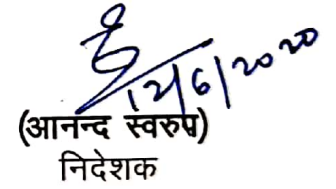 12/6/2020
(आनन्द स्वरुप)
निदेशक